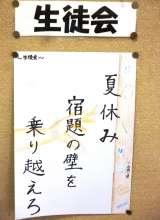 生徒会
夏休み
宿題の壁を
乗り越えろ